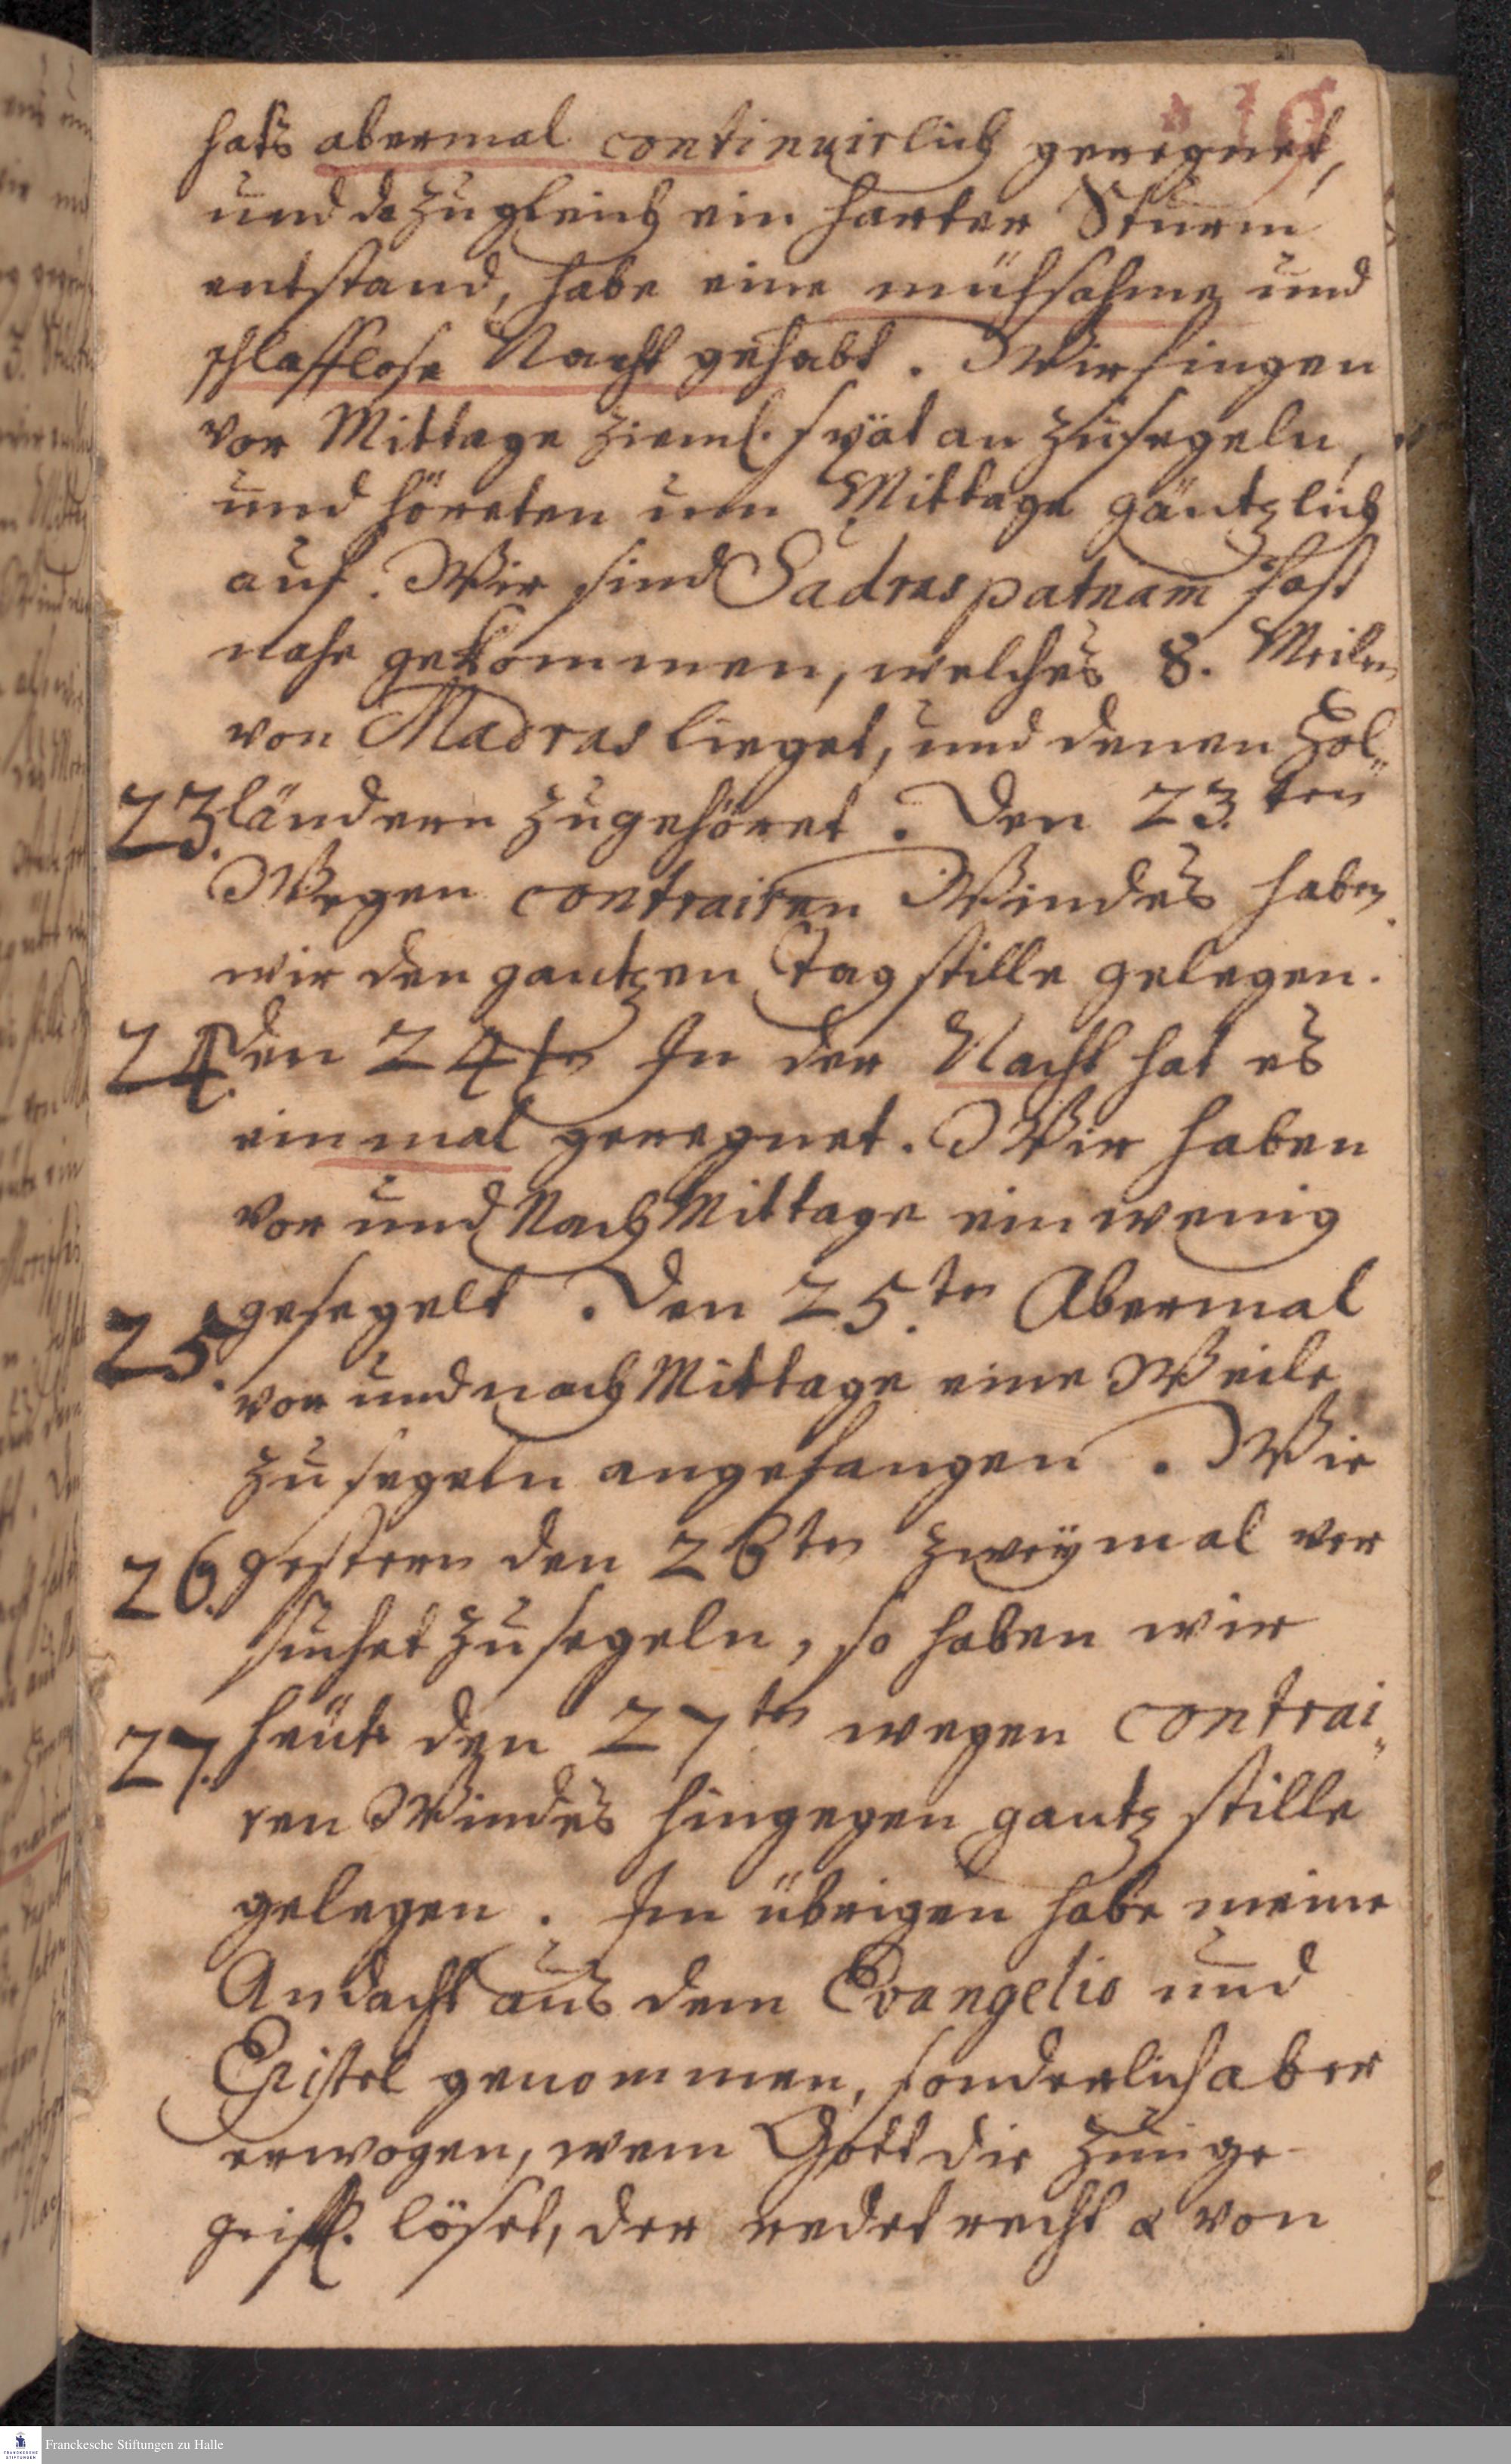 119
hats abermal continuirlich geregnet,
und da zugleich ein harter Sturm
entstand, habe eine mühsahme und
schlafflose Nacht gehabt. Wir fingen
vor Mittage zieml. spät an zu segeln,
und höreten um Mittage gäntzlich
auf. Wir sind Sadraspatnam fast
nahe gekommen, welches 8. Meilen
von Madras lieget, und denen Hol„
23. ländern zugehöret. Den 23.ten
Wegen contrairen Windes haben
wir den gantzen Tag stille gelegen.
24. den 24tn In der Nacht hat es
einmal geregnet. Wir haben
vor und Nach Mittage ein wenig
25. gesegelt. Den 25.tn Abermal
vor und nach Mittage eine Weile
zu segeln angefangen. Wie
26. gestern den 26tn zweÿmal ver
suchet zu segeln, so haben wir
27. heute den 27tn wegen contrai„
ren Windes hingegen gantz stille
gelegen. Im übrigen habe meine
Andacht aus dem Evangelio und
Epistel genommen, sonderlich aber
erwogen, wem Gott die Zunge
geistl. löset, der redet recht & von
Franckesche Stiftungen zu Halle